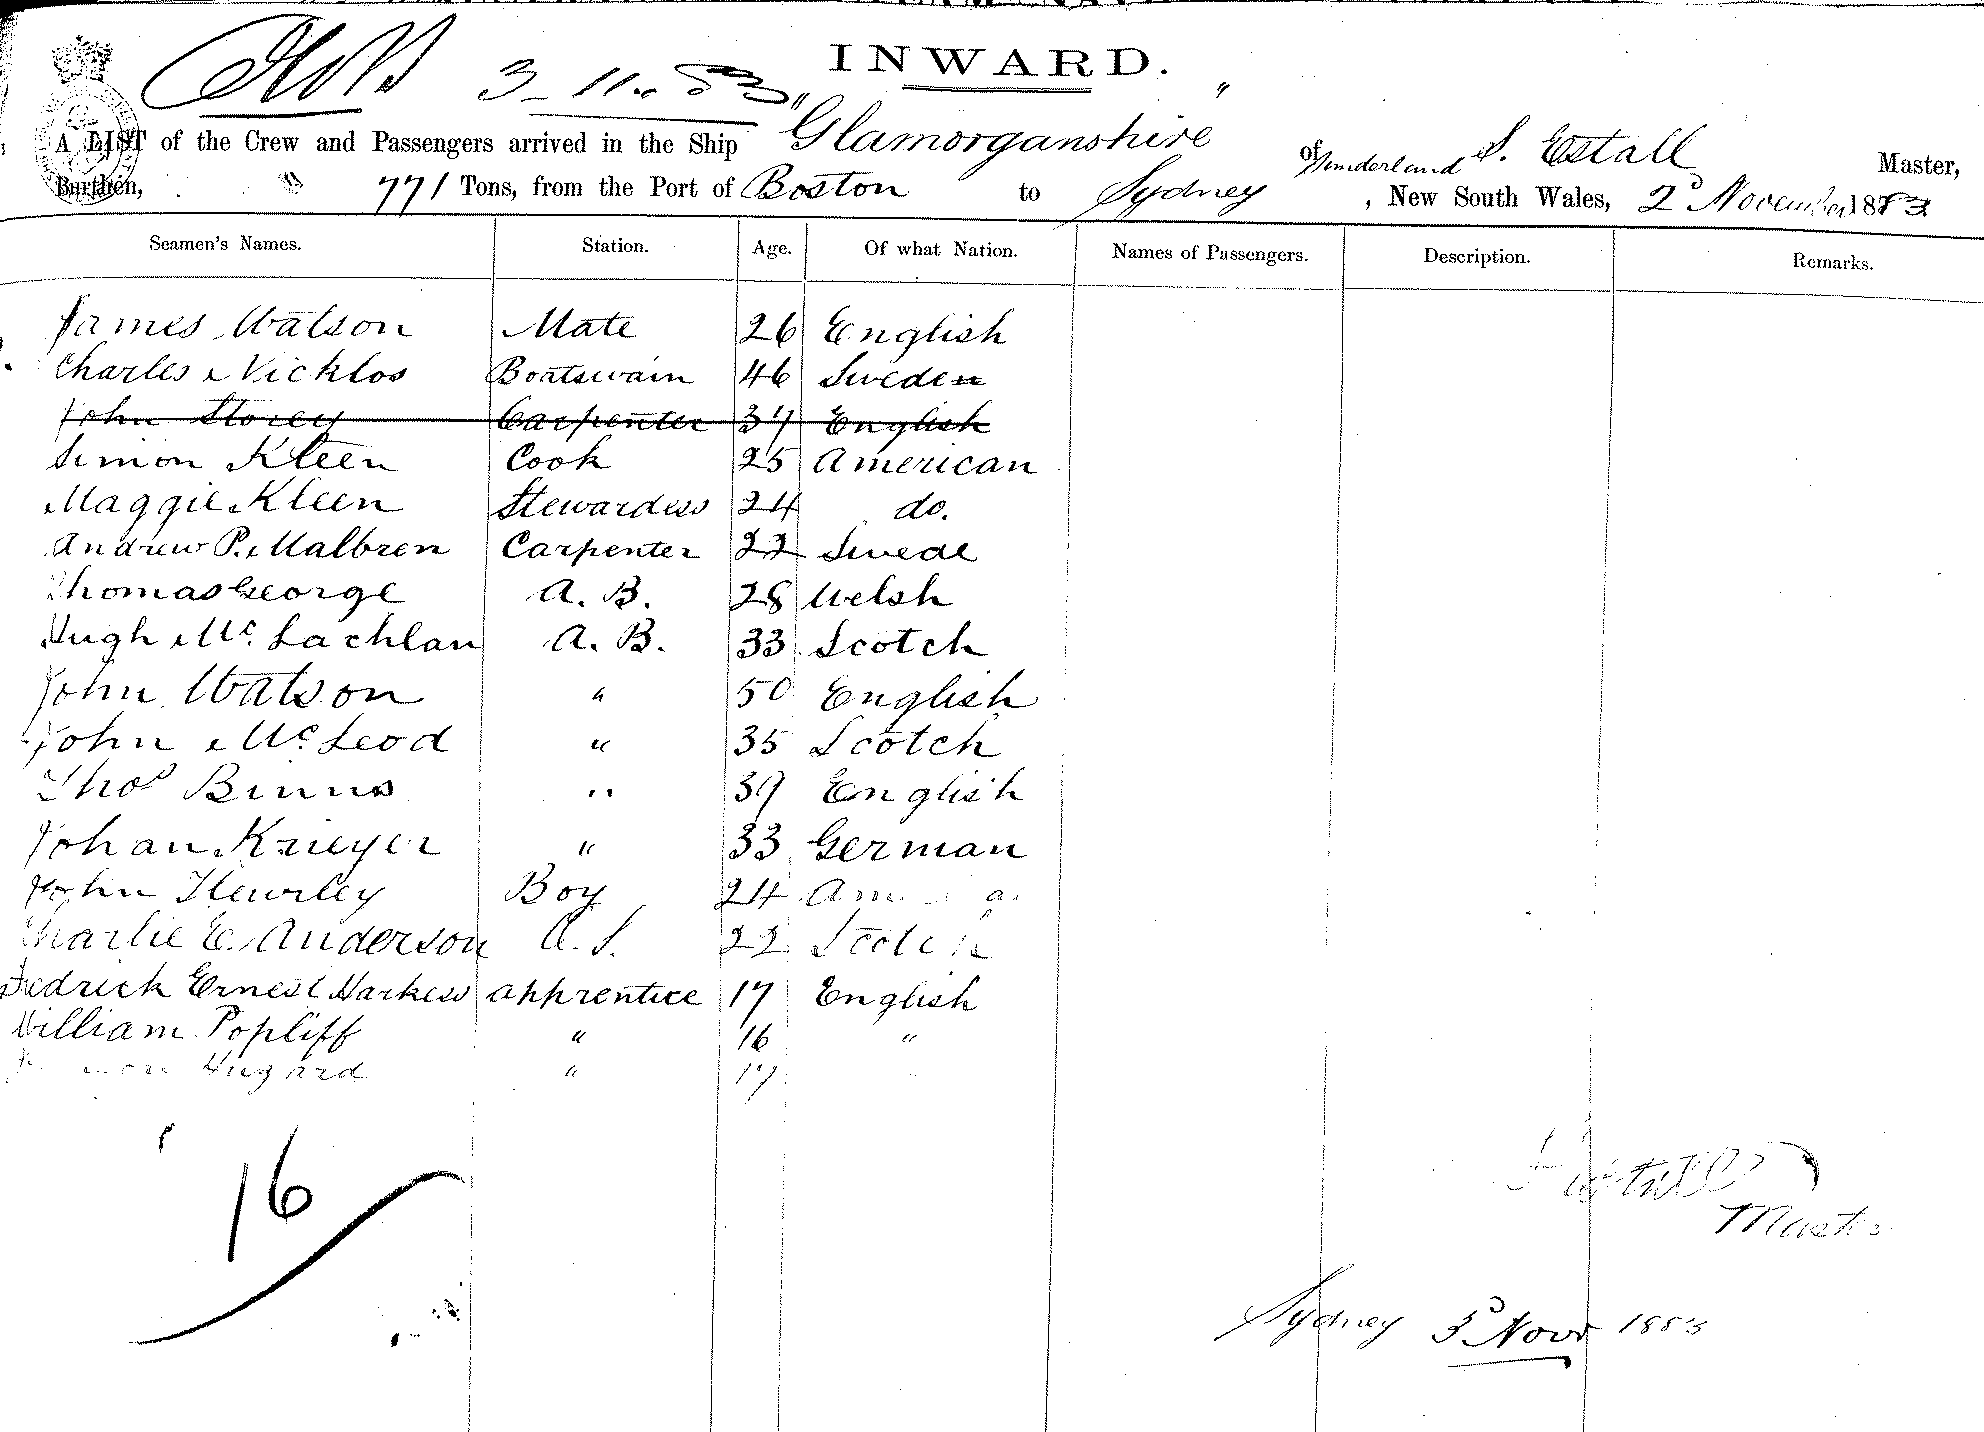 INWARD.
3-11-83
A LIST of the Crew and Passengers arrived in the Ship "Glamorganshire" of Sunderland S. Estall Master,
Burthen, 771 Tons, from the Port of Boston to Sydney, New South Wales, 2d November 1883
Seamen's Names. Station. Age. Of what Nation. Names of Passengers. Description. Remarks.
James Watson Mate 26 English
Charles Nicklos Boatswain 46 Sweden
John Storey Carpenter 37 English
Simon Kleen Cook 25 American
Maggie Kleen Stewardess 24 do.
Andrew P. Malbren Carpenter 22 Swede
Thomas George A. B. 28 Welsh
Hugh Mc. Lachlan A. B. 33 Scotch
John Watson " 50 English
John Mc Leod " 35 Scotch
Thos Binns " 39 English
Johan Krieyer " 33 German
John Hewrley Boy 24
Charlie E. Anderson O. S. 22 Scotch
Fredrick Ernest Harkess apprentice 17 English
William Popliff " 16 "
Hugard " 17
16
Estall
Master
Sydney 3d Novr 1883